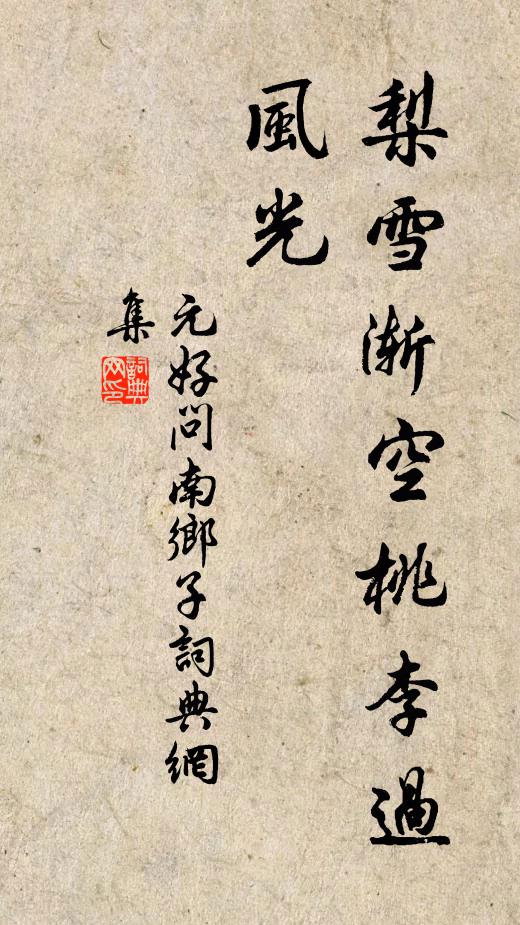 梨雪漸空桃李過
風光
元好問南鄉子詞典網
集
詞典
网印